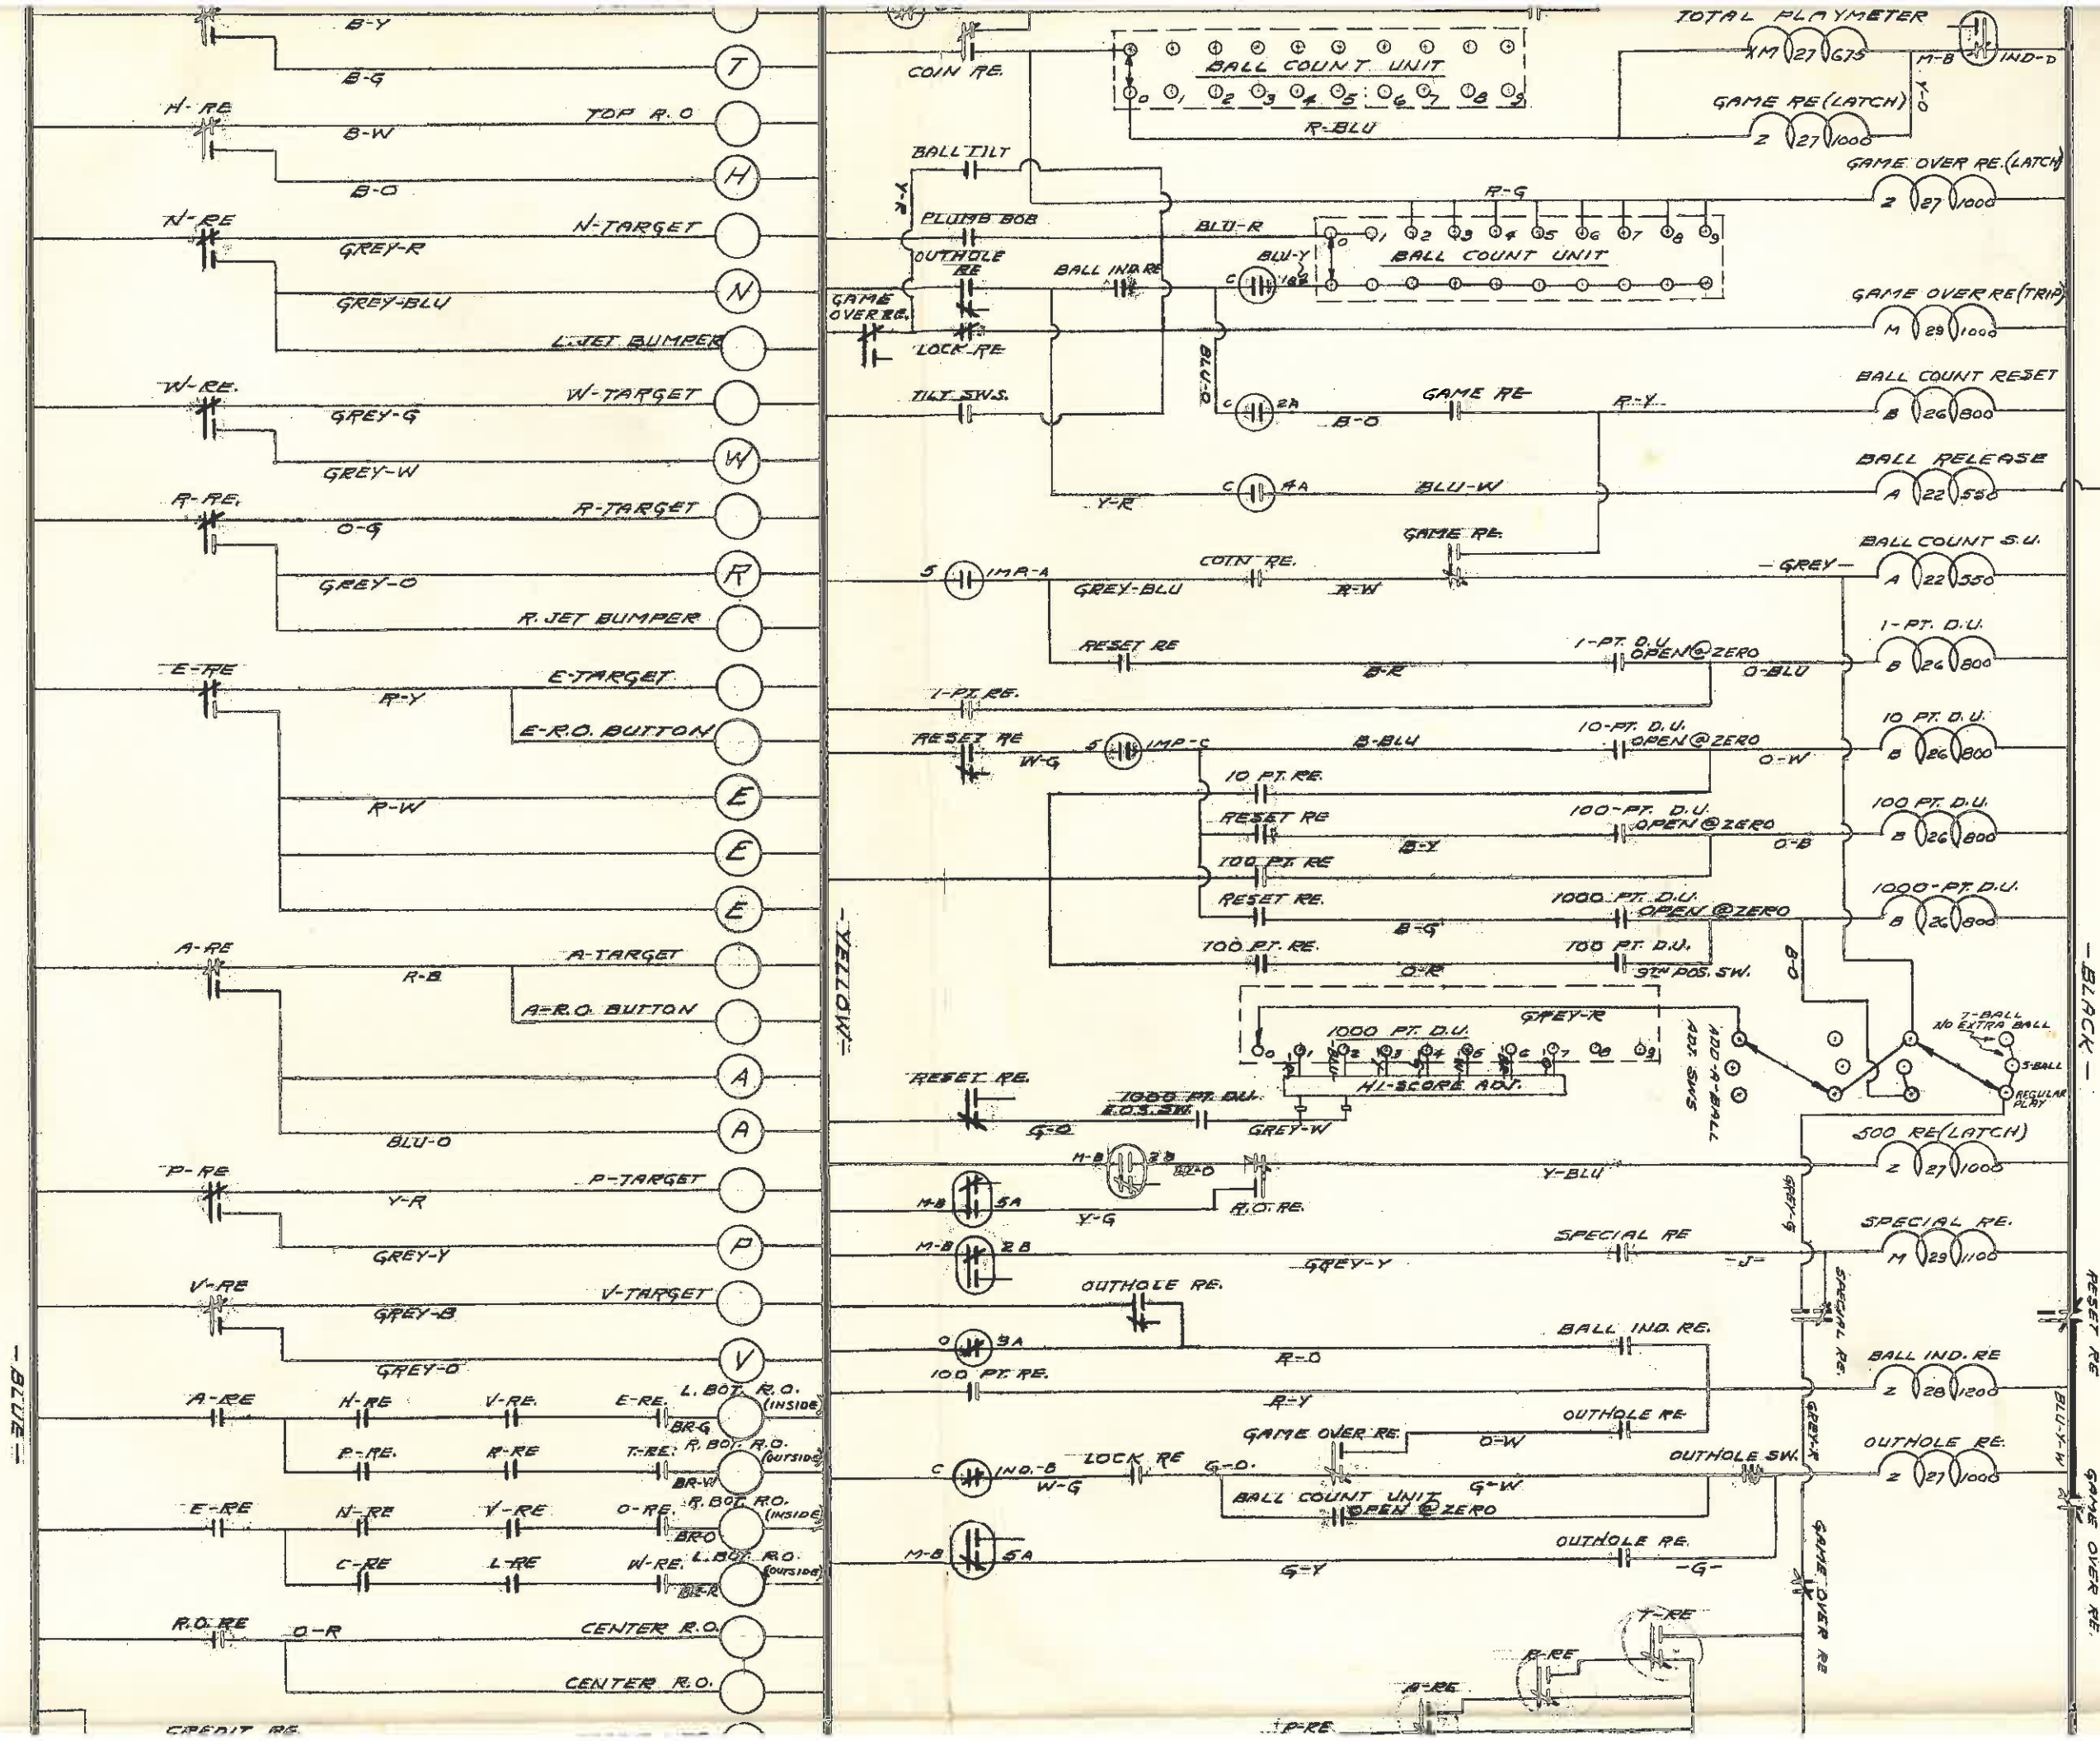 B-Y
T
B-G
H-RE
TOP R.O
B-W
H
B-O
N-RE
N-TARGET
GREY-R
N
GREY-BLU
L.JET BUMPER
W-RE.
W-TARGET
GREY-G
W
GREY-W
R-RE.
R-TARGET
O-G
R
GREY-O
R. JET BUMPER
E-RE
E-TARGET
R-Y
E-R.O. BUTTON
E
R-W
E
E
A-RE
A-TARGET
R-B
A-R.O. BUTTON
A
A
BLU-O
P-RE
P-TARGET
Y-R
P
GREY-Y
V-RE
V-TARGET
GREY-B
V
GREY-O
A-RE
H-RE
V-RE.
E-RE.
L. BOT. R.O.
(INSIDE)
BR-G
P-RE.
R-RE
T-RE.
R. BOT. R.O.
(OUTSIDE)
BR-W
E-RE
N-RE
V-RE
O-RE.
R. BOT. R.O.
(INSIDE)
BR-O
C-RE
L-RE
W-RE.
L. BOT. R.O.
(OUTSIDE)
R.O. RE
O-R
CENTER R.O.
CENTER R.O.
CREDIT RE.
-BLUE-
-YELLOW-
COIN RE.
BALL COUNT UNIT
0 1 2 3 4 5 6 7 8 9
R-BLU
TOTAL PLAYMETER
XM 27 675
M-B
IND-D
Y-O
GAME RE(LATCH)
Z 27 1000
BALL TILT
Y-R
R-G
GAME OVER RE.(LATCH)
Z 27 1000
PLUMB BOB
BLU-R
0 1 2 3 4 5 6 7 8 9
BALL COUNT UNIT
OUTHOLE
RE
BALL IND.RE
BLU-Y
C
GAME
OVER RE.
LOCK-RE
GAME OVER RE(TRIP)
M 29 1000
BLU-O
TILT SWS.
C 2A
B-O
GAME RE
R-Y
BALL COUNT RESET
B 26 800
Y-R
C 4A
BLU-W
BALL RELEASE
A 22 550
S IMP-A
GREY-BLU
COIN RE.
R-W
GAME RE.
-GREY-
BALL COUNT S.U.
A 22 550
RESET RE
B-R
1-PT. D.U.
OPEN@ZERO
O-BLU
1-PT. D.U.
B 26 800
1-PT. RE.
RESET RE
W-G
S IMP-C
B-BLU
10-PT. D.U.
OPEN@ZERO
O-W
10 PT. D.U.
B 26 800
10 PT. RE.
RESET RE
B-Y
100-PT. D.U.
OPEN@ZERO
O-B
100 PT. D.U.
B 26 800
100 PT. RE
RESET RE.
B-G
1000 PT. D.U.
OPEN @ZERO
1000-PT. D.U.
B 26 800
100 PT. RE.
O-R
100 PT D.U.
9TH POS. SW.
B-O
GREY-R
1000 PT. D.U.
0 1 2 3 4 5 6 7 8 9
HI-SCORE ADJ.
ADD-A-BALL
ADJ. SWS
7-BALL
NO EXTRA BALL
5-BALL
REGULAR
PLAY
RESET RE.
G-O
1000 PT. D.U.
E.O.S. SW.
GREY-W
M-B 2B
Y-BLU
500 RE(LATCH)
Z 27 1000
M-B 5A
Y-G
R.O. RE.
GREY-G
M-B 2B
GREY-Y
SPECIAL RE
-J-
SPECIAL RE.
M 29 1100
OUTHOLE RE.
SPECIAL RE.
O 3A
R-O
BALL IND. RE.
100 PT. RE.
R-Y
BALL IND. RE
Z 28 1200
GAME OVER RE.
O-W
OUTHOLE RE
C IND.-B
W-G
LOCK RE
G-O.
G-W
OUTHOLE SW.
OUTHOLE RE.
Z 27 1000
BALL COUNT UNIT
OPEN @ ZERO
M-B 5A
G-Y
OUTHOLE RE.
-G-
GAME OVER RE
T-RE
R-RE
A-RE
P-RE
-BLACK-
RESET RE
BLU-Y-W
GAME OVER RE.